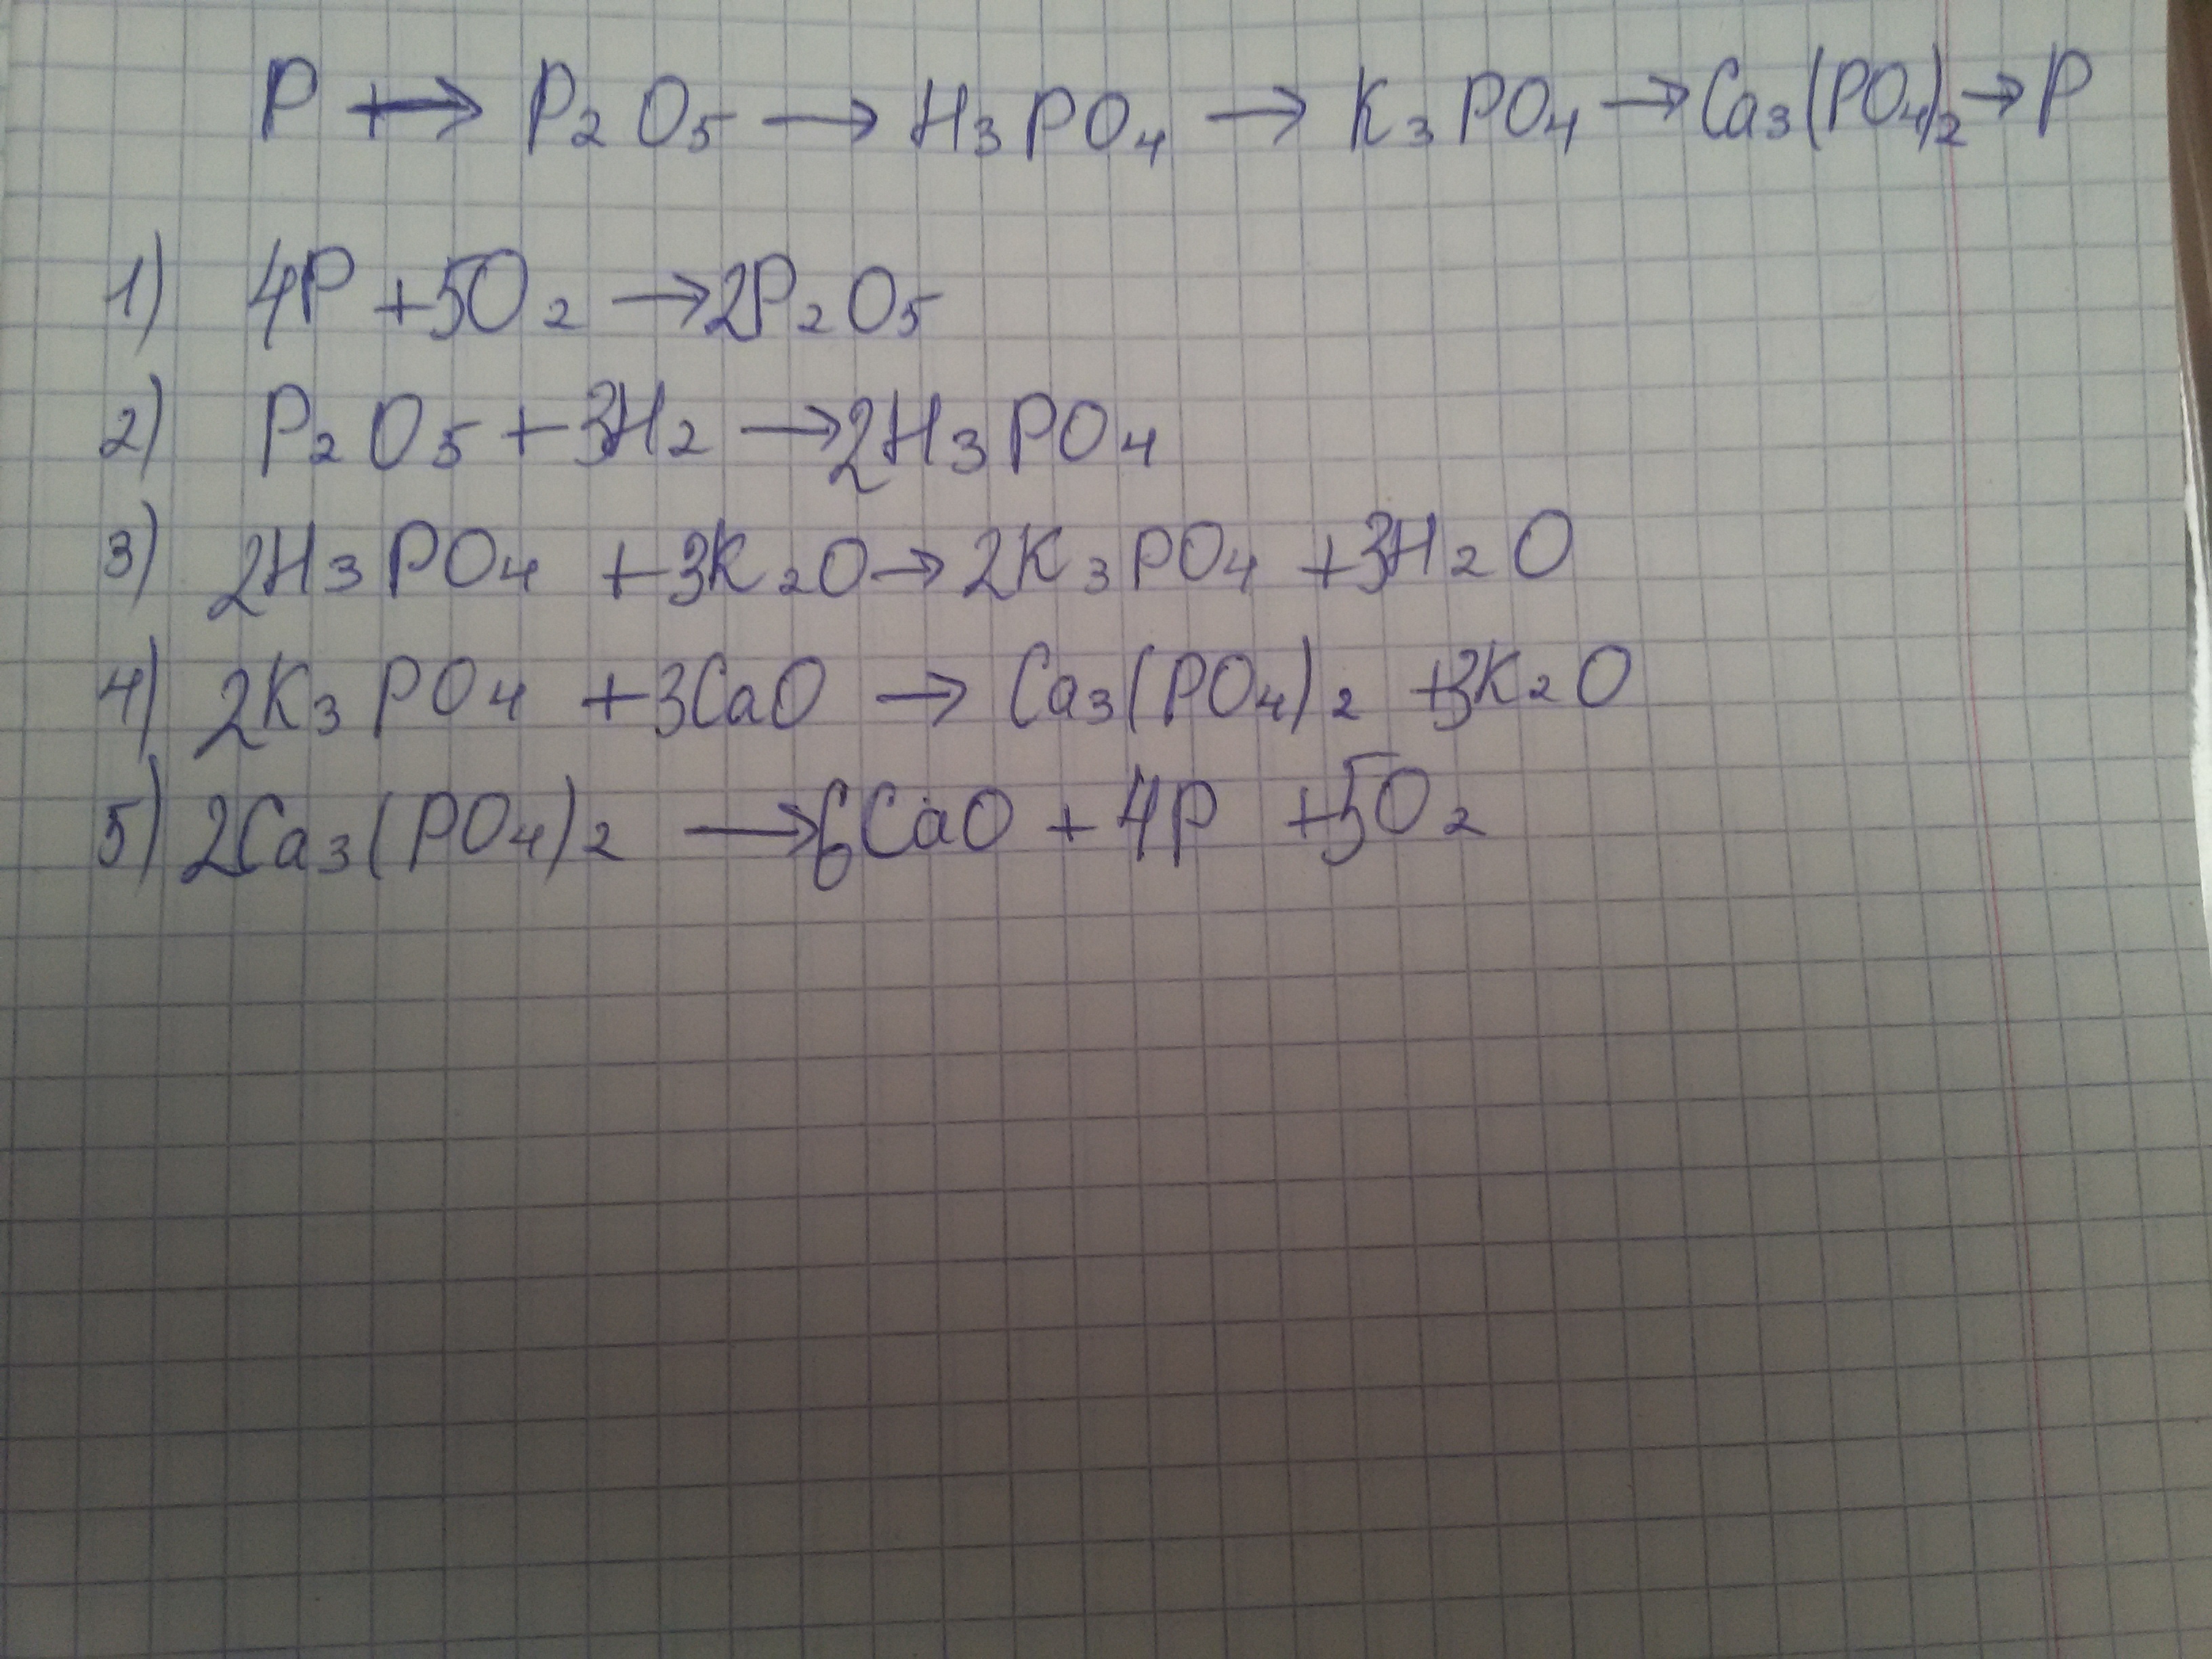 P → P₂O₅ → H₃PO₄ → K₃PO₄ → Ca₃(PO₄)₂ → P
1) 4P + 5O₂ → 2P₂O₅
2) P₂O₅ + 3H₂ → 2H₃PO₄
3) 2H₃PO₄ + 3K₂O → 2K₃PO₄ + 3H₂O
4) 2K₃PO₄ + 3CaO → Ca₃(PO₄)₂ + 3K₂O
5) 2Ca₃(PO₄)₂ → 6CaO + 4P + 5O₂